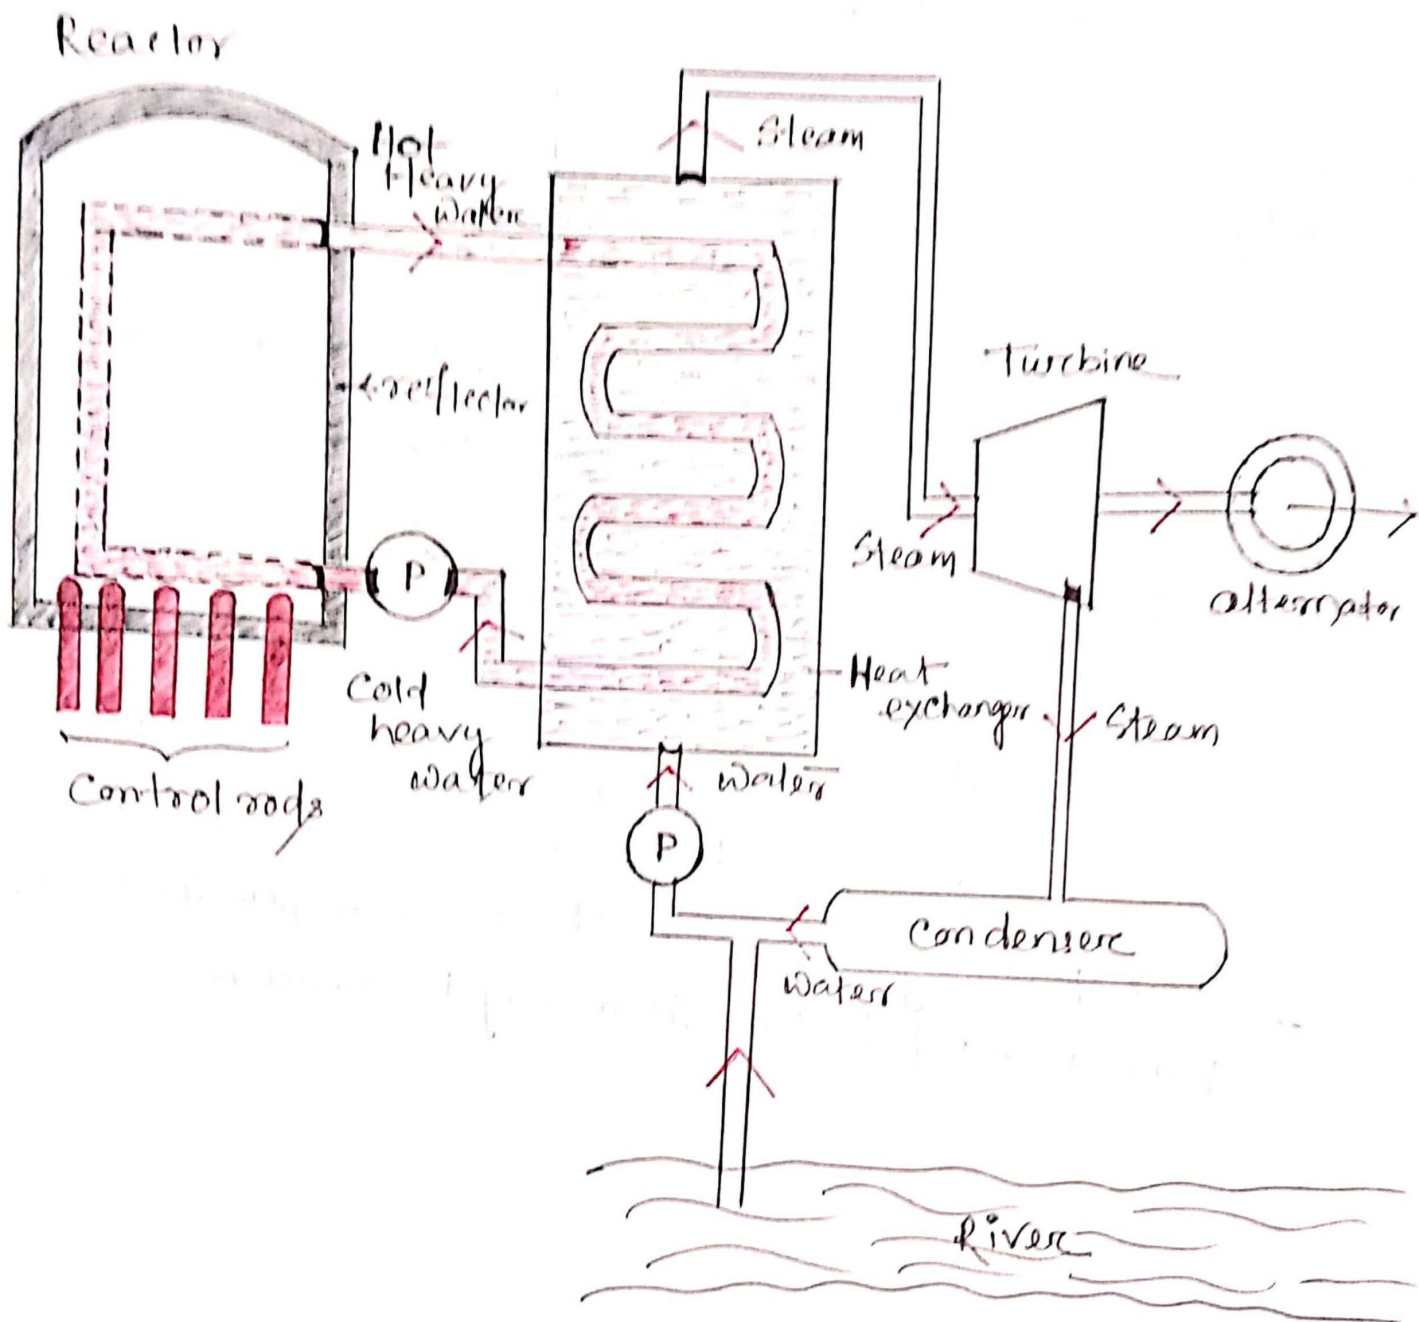 Reactor
Hot
Heavy
Water
Steam
reflector
Turbine
P
Steam
alternator
Cold
heavy
water
Heat
exchanger
Steam
Control rods
Water
P
Condenser
Water
River